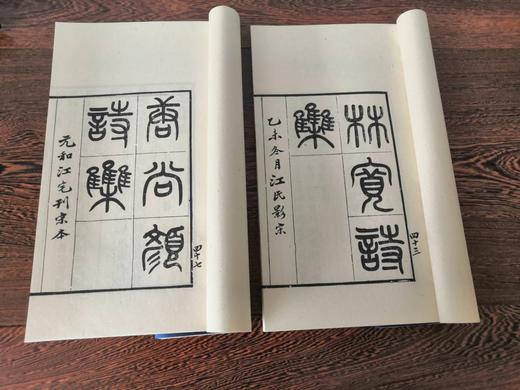 林寬詩
集
乙未冬月江氏影宋
四十三
唐尚顏
詩集
元和江宅刊宋本
四十七